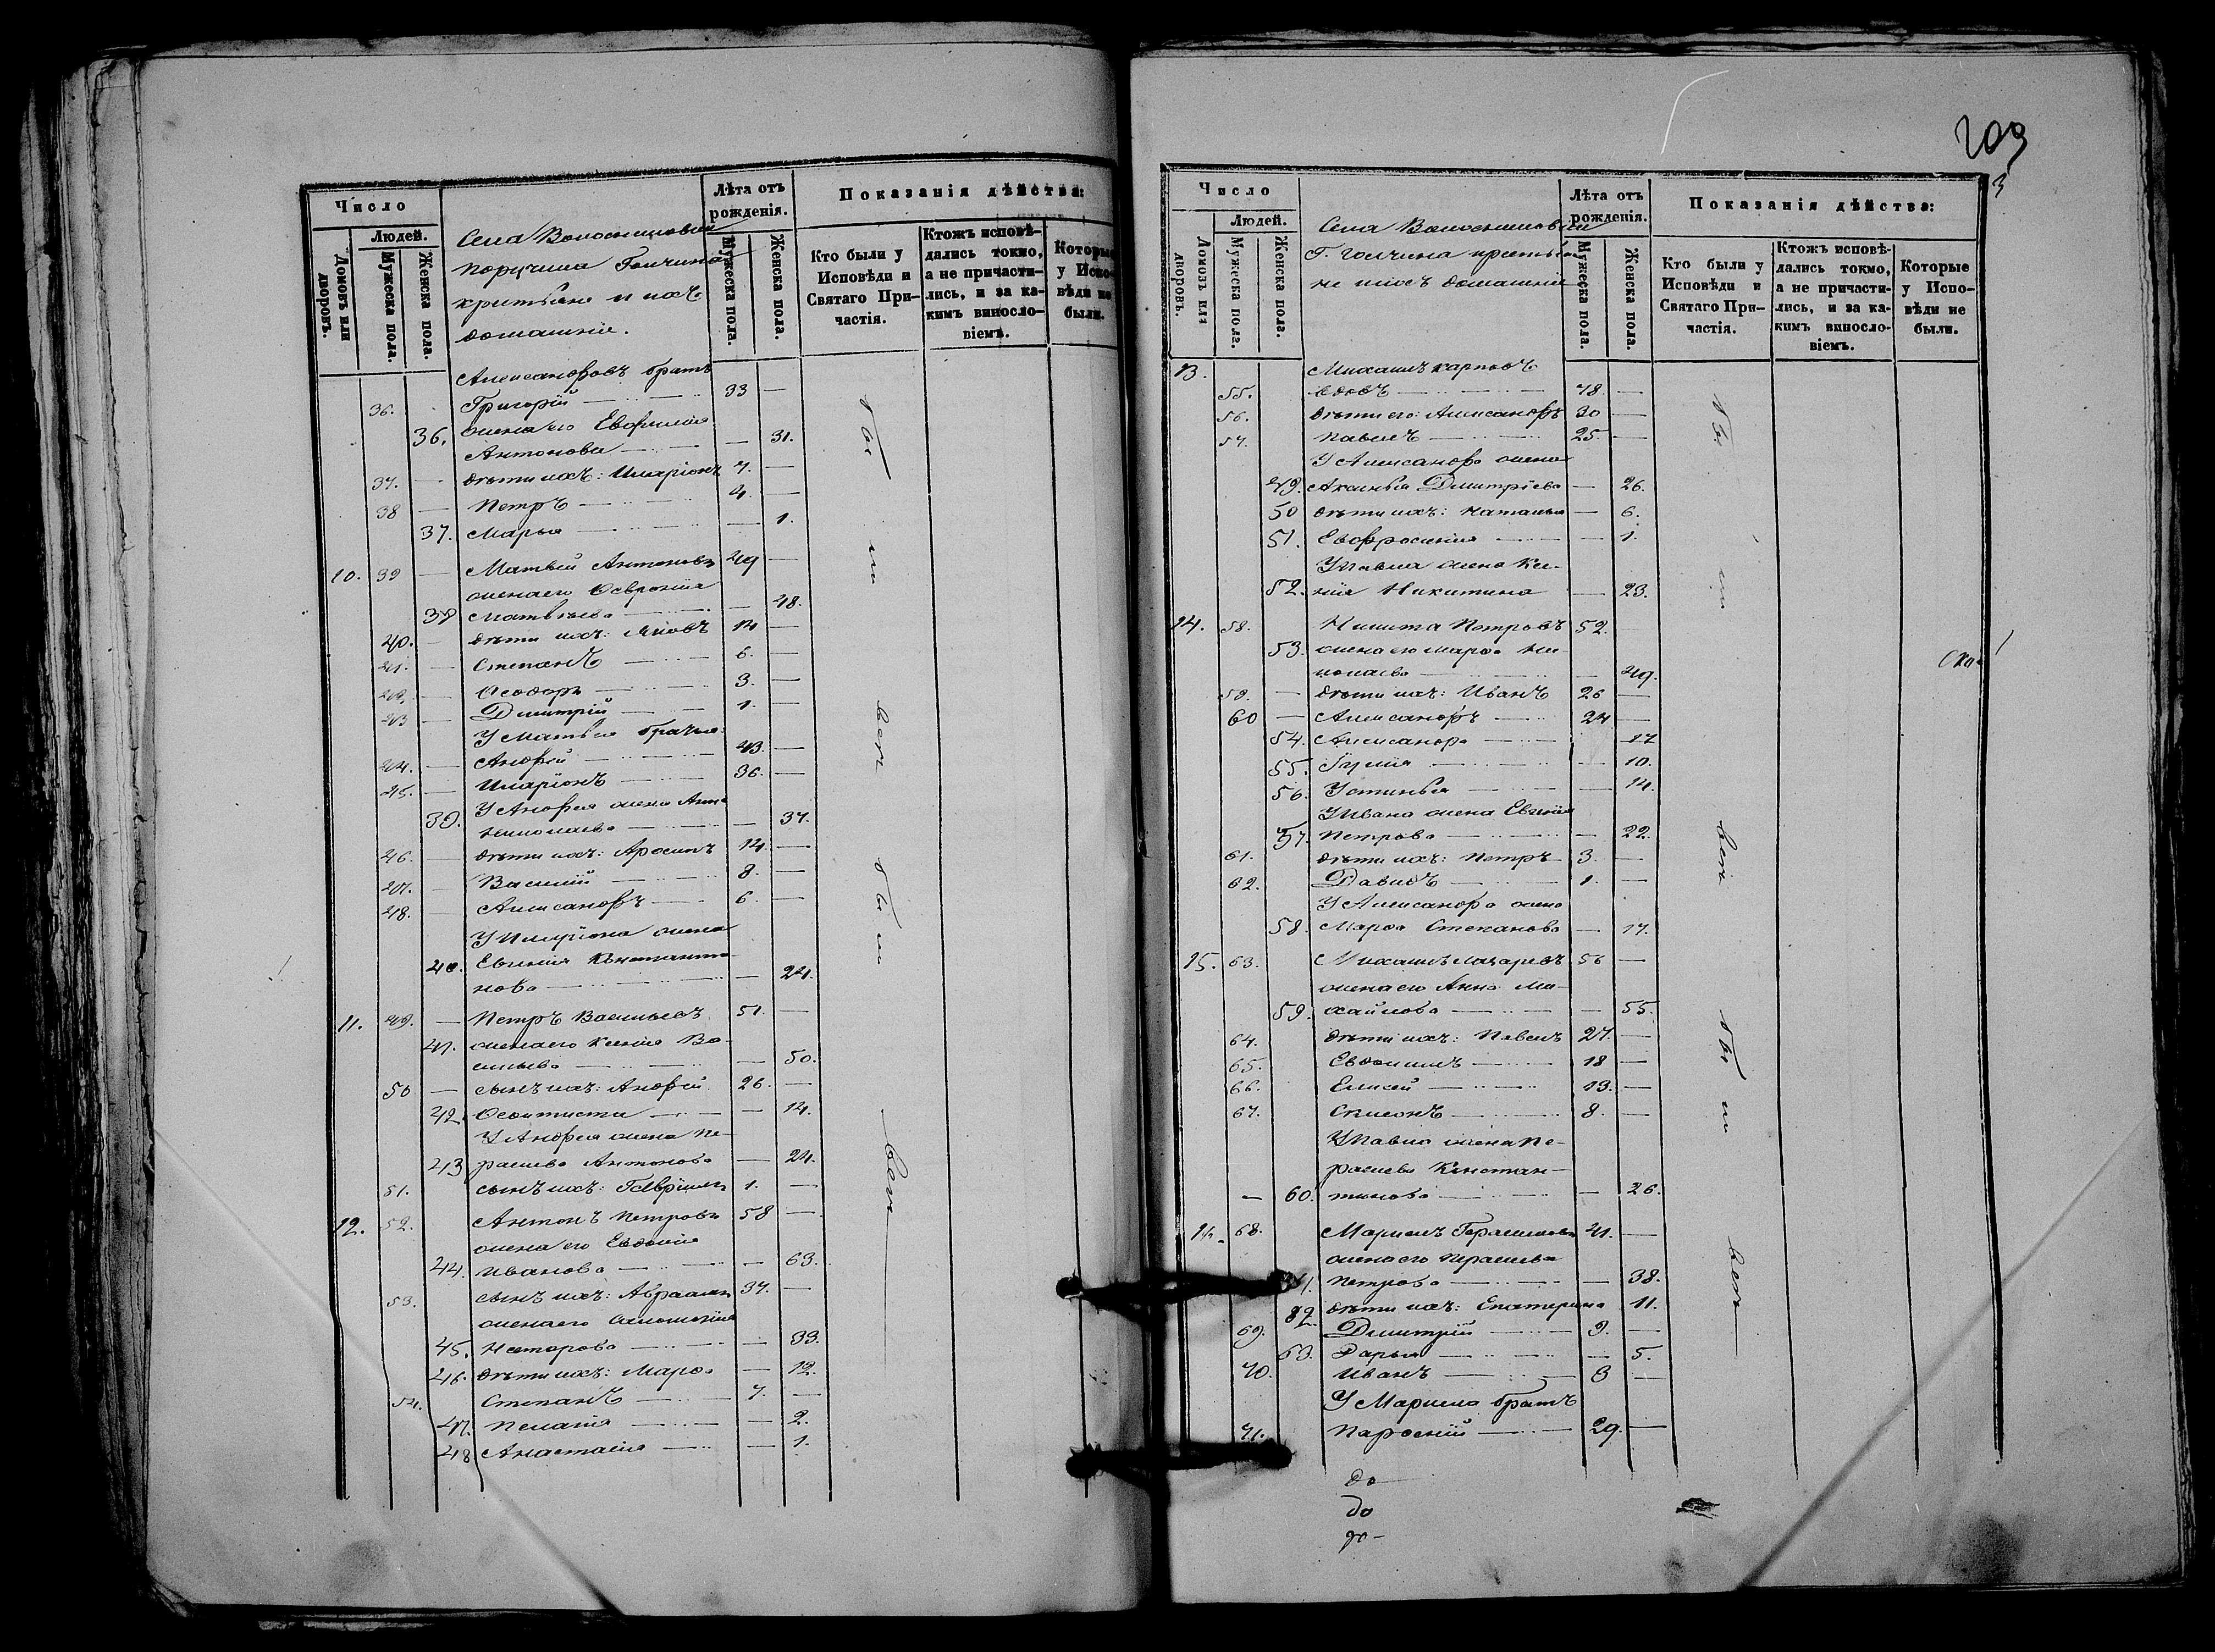 Число
Людей.
Домовъ или дворовъ.
Мужеска пола.
Женска пола.
Села
поручика Голчина
крестьяне и ихъ
домашніе.
Лѣта отъ рожденія.
Мужеска пола.
Женска пола.
Показанія дѣйства:
Кто были у Исповѣди и Святаго При-частія.
Ктожъ исповѣ-дались токмо, а не причасти-лись, и за ка-кимъ винословіемъ.
Которые у Испо-вѣди не были.
Александровъ братъ
36. Григорій 33 —
жена его Евфимія
36. Антонова — 31.
37. — дѣти ихъ: Иларіонъ 7. —
38 — Петръ 4. —
37. Марья — 1.
10. 39 — Матвей Антоновъ 49 —
жена его Февронія
38 Матвѣева — 48.
40. — дѣти ихъ: Яковъ 14 —
41. — Степанъ 6. —
42. — Феодоръ 3. —
43 — Дмитрій 1. —
У Матвея братья:
44. — Андрей 43. —
45. — Иларіонъ 36. —
У Андрея жена Анна
39. Николаева — 37.
46. — дѣти ихъ: 14. —
47. — Василій 8. —
48. — Александръ 6. —
У Иларіона жена
40. Евгенія Константи-
нова — 24.
11. 49. — Петръ Васильевъ 51. —
41. жена его Ксенія Ва-
сильева — 50.
50 — сынъ их: Андрей 26. —
42. Феоктиста — 14.
У Андрея жена Пе-
43 раскева Антонова — 24.
51. сынъ ихъ: Гавріилъ 1. —
12. 52. Антонъ Петровъ 58 —
жена его Евдокія
44. Иванова — 63.
53. сынъ ихъ: Авраамъ 37. —
жена его
45. Несторова — 33.
46. дѣти ихъ: Марѳа — 12.
54. Степанъ 7. —
47. Пелагія — 2.
48 Анастасія — 1.
бы
ли
вси
были
вси
203
Число
Людей.
Домовъ или дворовъ.
Мужеска пола.
Женска пола.
Села
Г. Голчина крестья-
не и ихъ домашніе
Лѣта отъ рожденія.
Мужеска пола.
Женска пола.
Показанія дѣйства:
Кто были у Исповѣди и Святаго При-частія.
Ктожъ исповѣ-дались токмо, а не причасти-лись, и за ка-кимъ винословіемъ.
Которые у Испо-вѣди не были.
13. Михаилъ Карповъ
55. вдовъ 78 —
56. дѣти его: Александръ 30 —
57. Павелъ 25. —
У Александра жена
49. Аксинья Дмитріева — 26.
50 дѣти ихъ: Наталья — 6.
51. Евфросинія — 1.
У Павла жена Ксе-
52. нія Никитина — 23.
14. 58. Никита Петровъ 52. —
53. жена его Марѳа Ни-
колаева — 49.
59. — дѣти ихъ: Иванъ 26 —
60 — Александръ 24 —
54. Александра 17
55. Гулия — 10.
56. Устинья — 14.
У Ивана жена Евгенія
57. Петрова — 22.
61. дѣти ихъ: Петръ 3. —
62. Давидъ 1. —
У Александра жена
58. Марѳа Степанова — 17.
15. 63. Михаилъ Лазаревъ 56 —
жена его Анна Ми-
59. хайлова — 55.
64. дѣти ихъ: Павелъ 27. —
65. Евдокимъ 18 —
66. Елисей 13. —
67. Симеонъ 8. —
У Павла жена Пе-
раскева Констан-
— 60. тинова — 26.
16. 68. Маркелъ Герасимовъ 41. —
жена его Праскева
61. Петрова — 38.
62 дѣти ихъ: Екатерина 11.
69. Димитрій 9. —
63. Дарья — 5.
70. Иванъ 3 —
У Маркела братъ
71. Парѳеній 29. —
бы
ли
вси
были
вси
до
до